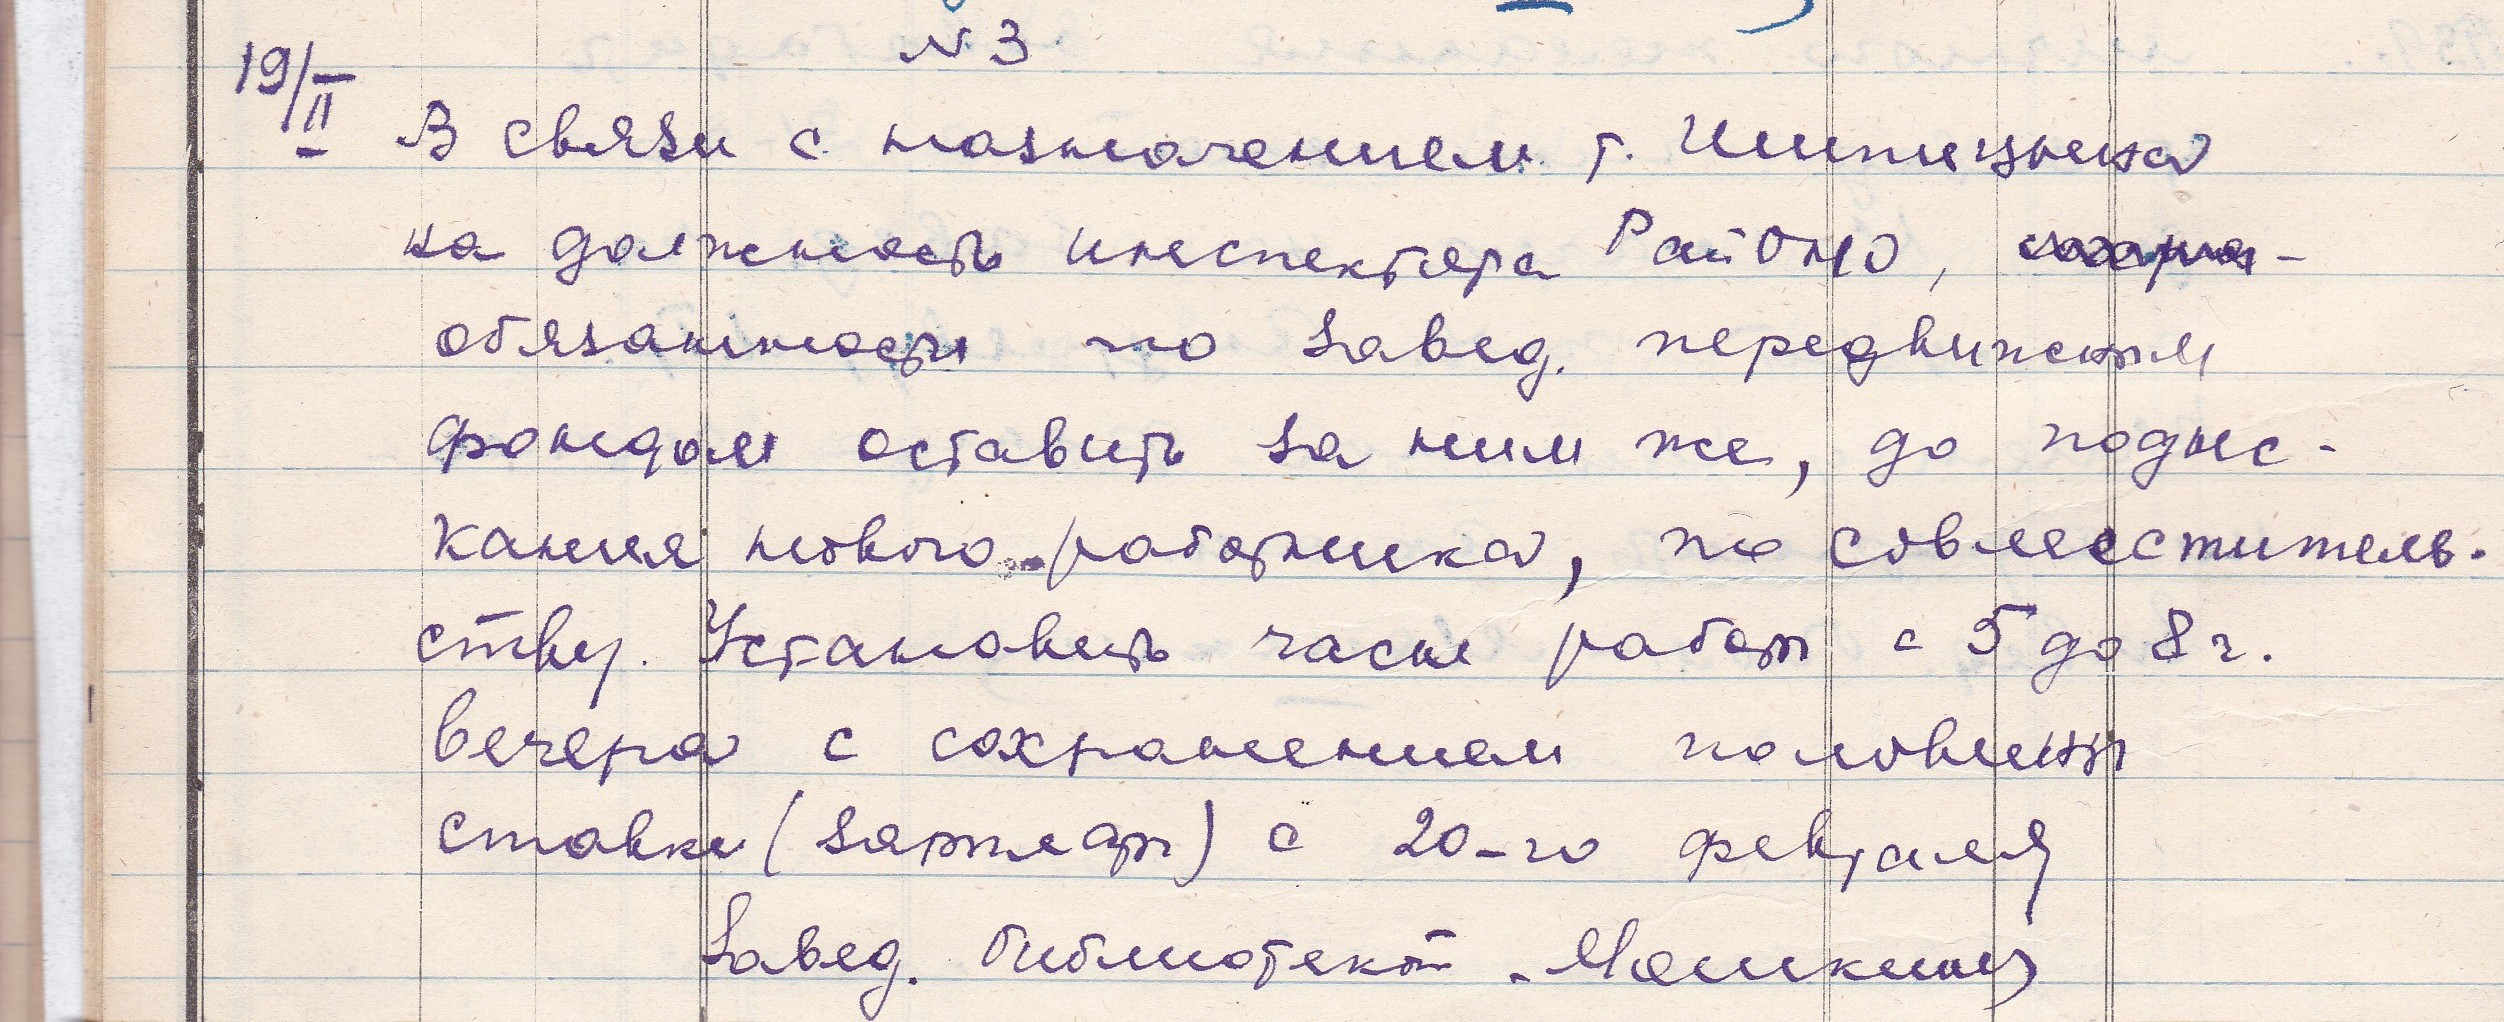 N 3
19/II
В связи с назначением т. Шипицына
на должность инспектора РайОНО,
обязанности по завед. передвижным
фондом оставить за ним же, до подыс-
кания нового работника, по совместитель-
ству. Установить часы работы с 5 до 8 ч.
вечера с сохранением половины
ставки (зарплаты) с 20-го февраля
Завед. библиотекой